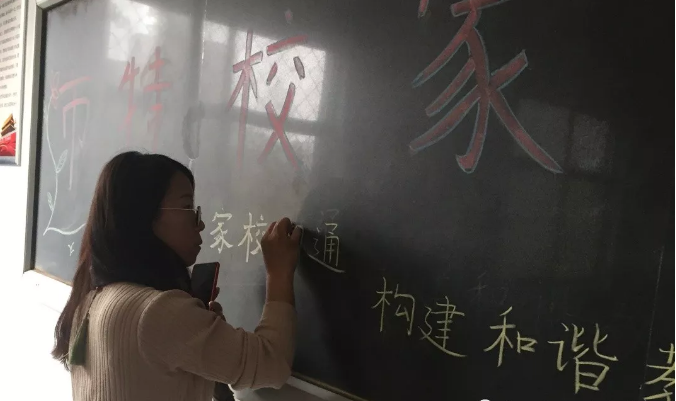 师特校家
家校 通
构建和谐